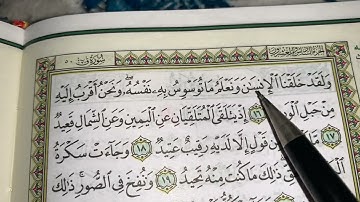 سورة ق ٥٠
وَلَقَدْ خَلَقْنَا ٱلْإِنسَٰنَ وَنَعْلَمُ مَا تُوَسْوِسُ بِهِۦ نَفْسُهُۥ وَنَحْنُ أَقْرَبُ إِلَيْهِ
مِنْ حَبْلِ ١٦ إِذْ يَتَلَقَّى ٱلْمُتَلَقِّيَانِ عَنِ ٱلْيَمِينِ وَعَنِ ٱلشِّمَالِ قَعِيدٌ
١٧ مِن قَوْلٍ إِلَّا لَدَيْهِ رَقِيبٌ عَتِيدٌ ١٨ وَجَآءَتْ سَكْرَةُ
ذَٰلِكَ مَا كُنتَ مِنْهُ تَحِيدُ ١٩ وَنُفِخَ فِى ٱلصُّورِ ذَٰلِكَ